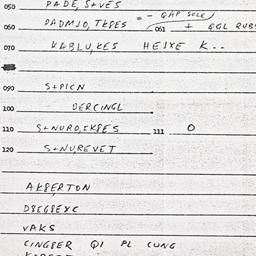 050 PADE, S+VES
= - QAP SOLE)
060 DADMJO, TKPES 061 + QGL RUBS
070 KABLU, KES HEJXE K..
090 S+PICN
100 DERCINGL
110 S+NURD, EKPES 111 O
120 S+NUREVET
AKBERTON
DSCGBEXC
VAKS
CINGBER QI PL CUNG